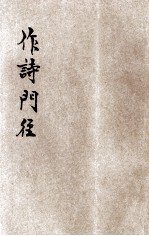 作詩門徑